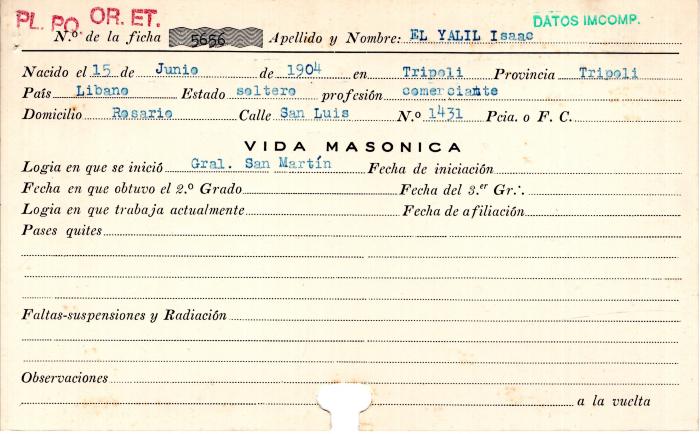 PL. PO OR. ET.
DATOS IMCOMP.
N.º de la ficha 5656 Apellido y Nombre: EL YALIL Isaac
Nacido el 15 de Junio de 1904 en Tripoli Provincia Tripoli
País Libano Estado soltero profesión comerciante
Domicilio Rosario Calle San Luis N.º 1431 Pcia. o F. C.
VIDA MASONICA
Logia en que se inició Gral. San Martín Fecha de iniciación
Fecha en que obtuvo el 2.º Grado Fecha del 3.er Gr∴
Logia en que trabaja actualmente Fecha de afiliación
Pases quites
Faltas-suspensiones y Radiación
Observaciones
a la vuelta